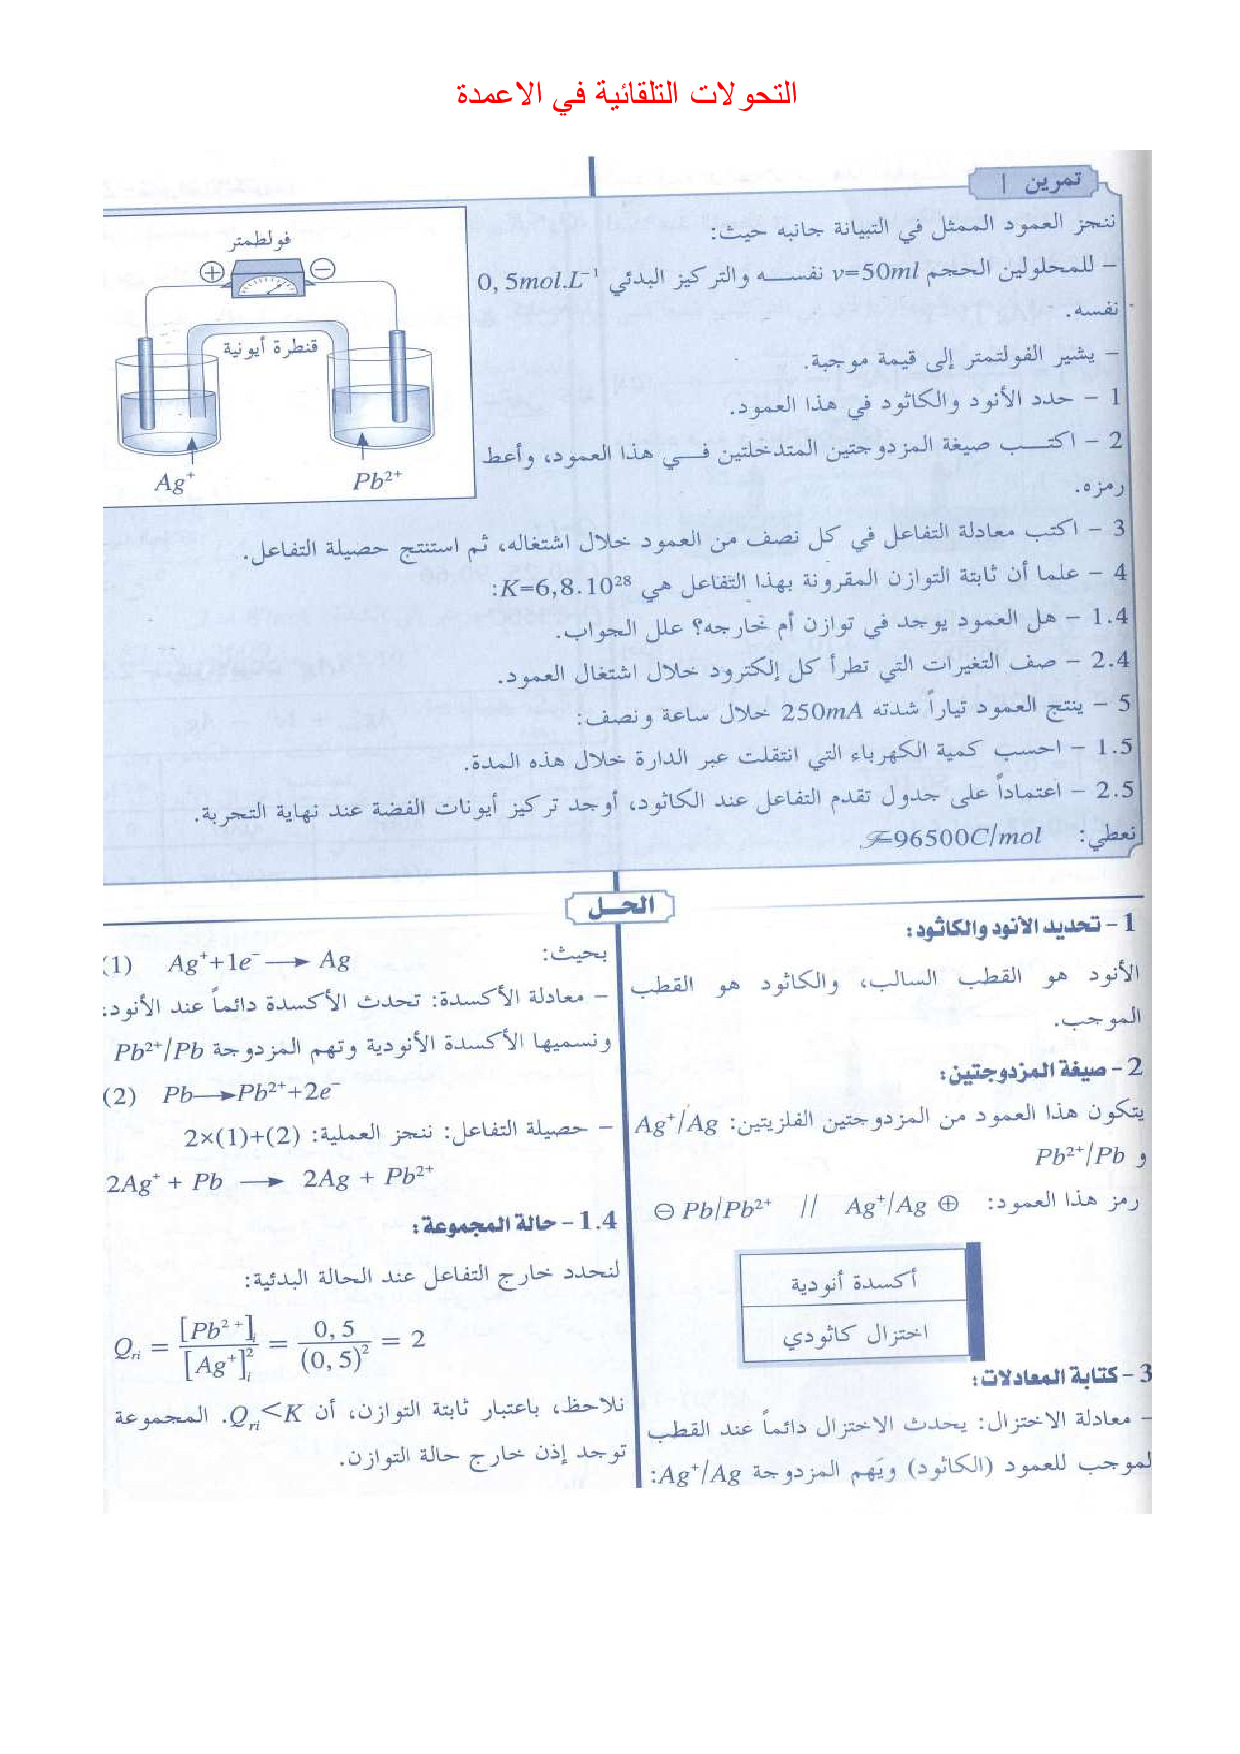 التحولات التلقائية في الاعمدة
تمرين 1
ننجز العمود الممثل في التبيانة جانبه حيث:
– للمحلولين الحجم v=50ml نفسه والتركيز البدئي 0,5mol.L⁻¹
نفسه.
– يشير الفولتمتر إلى قيمة موجبة.
1 – حدد الأنود والكاثود في هذا العمود.
2 – اكتب صيغة المزدوجتين المتدخلتين في هذا العمود، وأعط
رمزه.
فولطمتر
+ −
قنطرة أيونية
Ag⁺ Pb²⁺
3 – اكتب معادلة التفاعل في كل نصف من العمود خلال اشتغاله، ثم استنتج حصيلة التفاعل.
4 – علما أن ثابتة التوازن المقرونة بهذا التفاعل هي K=6,8.10²⁸:
1.4 – هل العمود يوجد في توازن أم خارجه؟ علل الجواب.
2.4 – صف التغيرات التي تطرأ كل إلكترود خلال اشتغال العمود.
5 – ينتج العمود تياراً شدته 250mA خلال ساعة ونصف:
1.5 – احسب كمية الكهرباء التي انتقلت عبر الدارة خلال هذه المدة.
2.5 – اعتماداً على جدول تقدم التفاعل عند الكاثود، أوجد تركيز أيونات الفضة عند نهاية التجربة.
نعطي: ℱ=96500C/mol
الحل
1 – تحديد الأنود والكاثود:
الأنود هو القطب السالب، والكاثود هو القطب
الموجب.
2 – صيغة المزدوجتين:
يتكون هذا العمود من المزدوجتين الفلزيتين: Ag⁺/Ag
و Pb²⁺/Pb
رمز هذا العمود: ⊖ Pb/Pb²⁺ // Ag⁺/Ag ⊕
أكسدة أنودية
اختزال كاثودي
3 – كتابة المعادلات:
– معادلة الاختزال: يحدث الاختزال دائماً عند القطب
لموجب للعمود (الكاثود) ويَهم المزدوجة Ag⁺/Ag:
بحيث: (1) Ag⁺+1e⁻ → Ag
– معادلة الأكسدة: تحدث الأكسدة دائماً عند الأنود:
ونسميها الأكسدة الأنودية وتهم المزدوجة Pb²⁺/Pb
(2) Pb→Pb²⁺+2e⁻
– حصيلة التفاعل: ننجز العملية: 2×(1)+(2)
2Ag⁺ + Pb → 2Ag + Pb²⁺
1.4 – حالة المجموعة:
لنحدد خارج التفاعل عند الحالة البدئية:
Qri = [Pb²⁺]i / [Ag⁺]²i = 0,5 / (0,5)² = 2
نلاحظ، باعتبار ثابتة التوازن، أن Qri<K. المجموعة
توجد إذن خارج حالة التوازن.